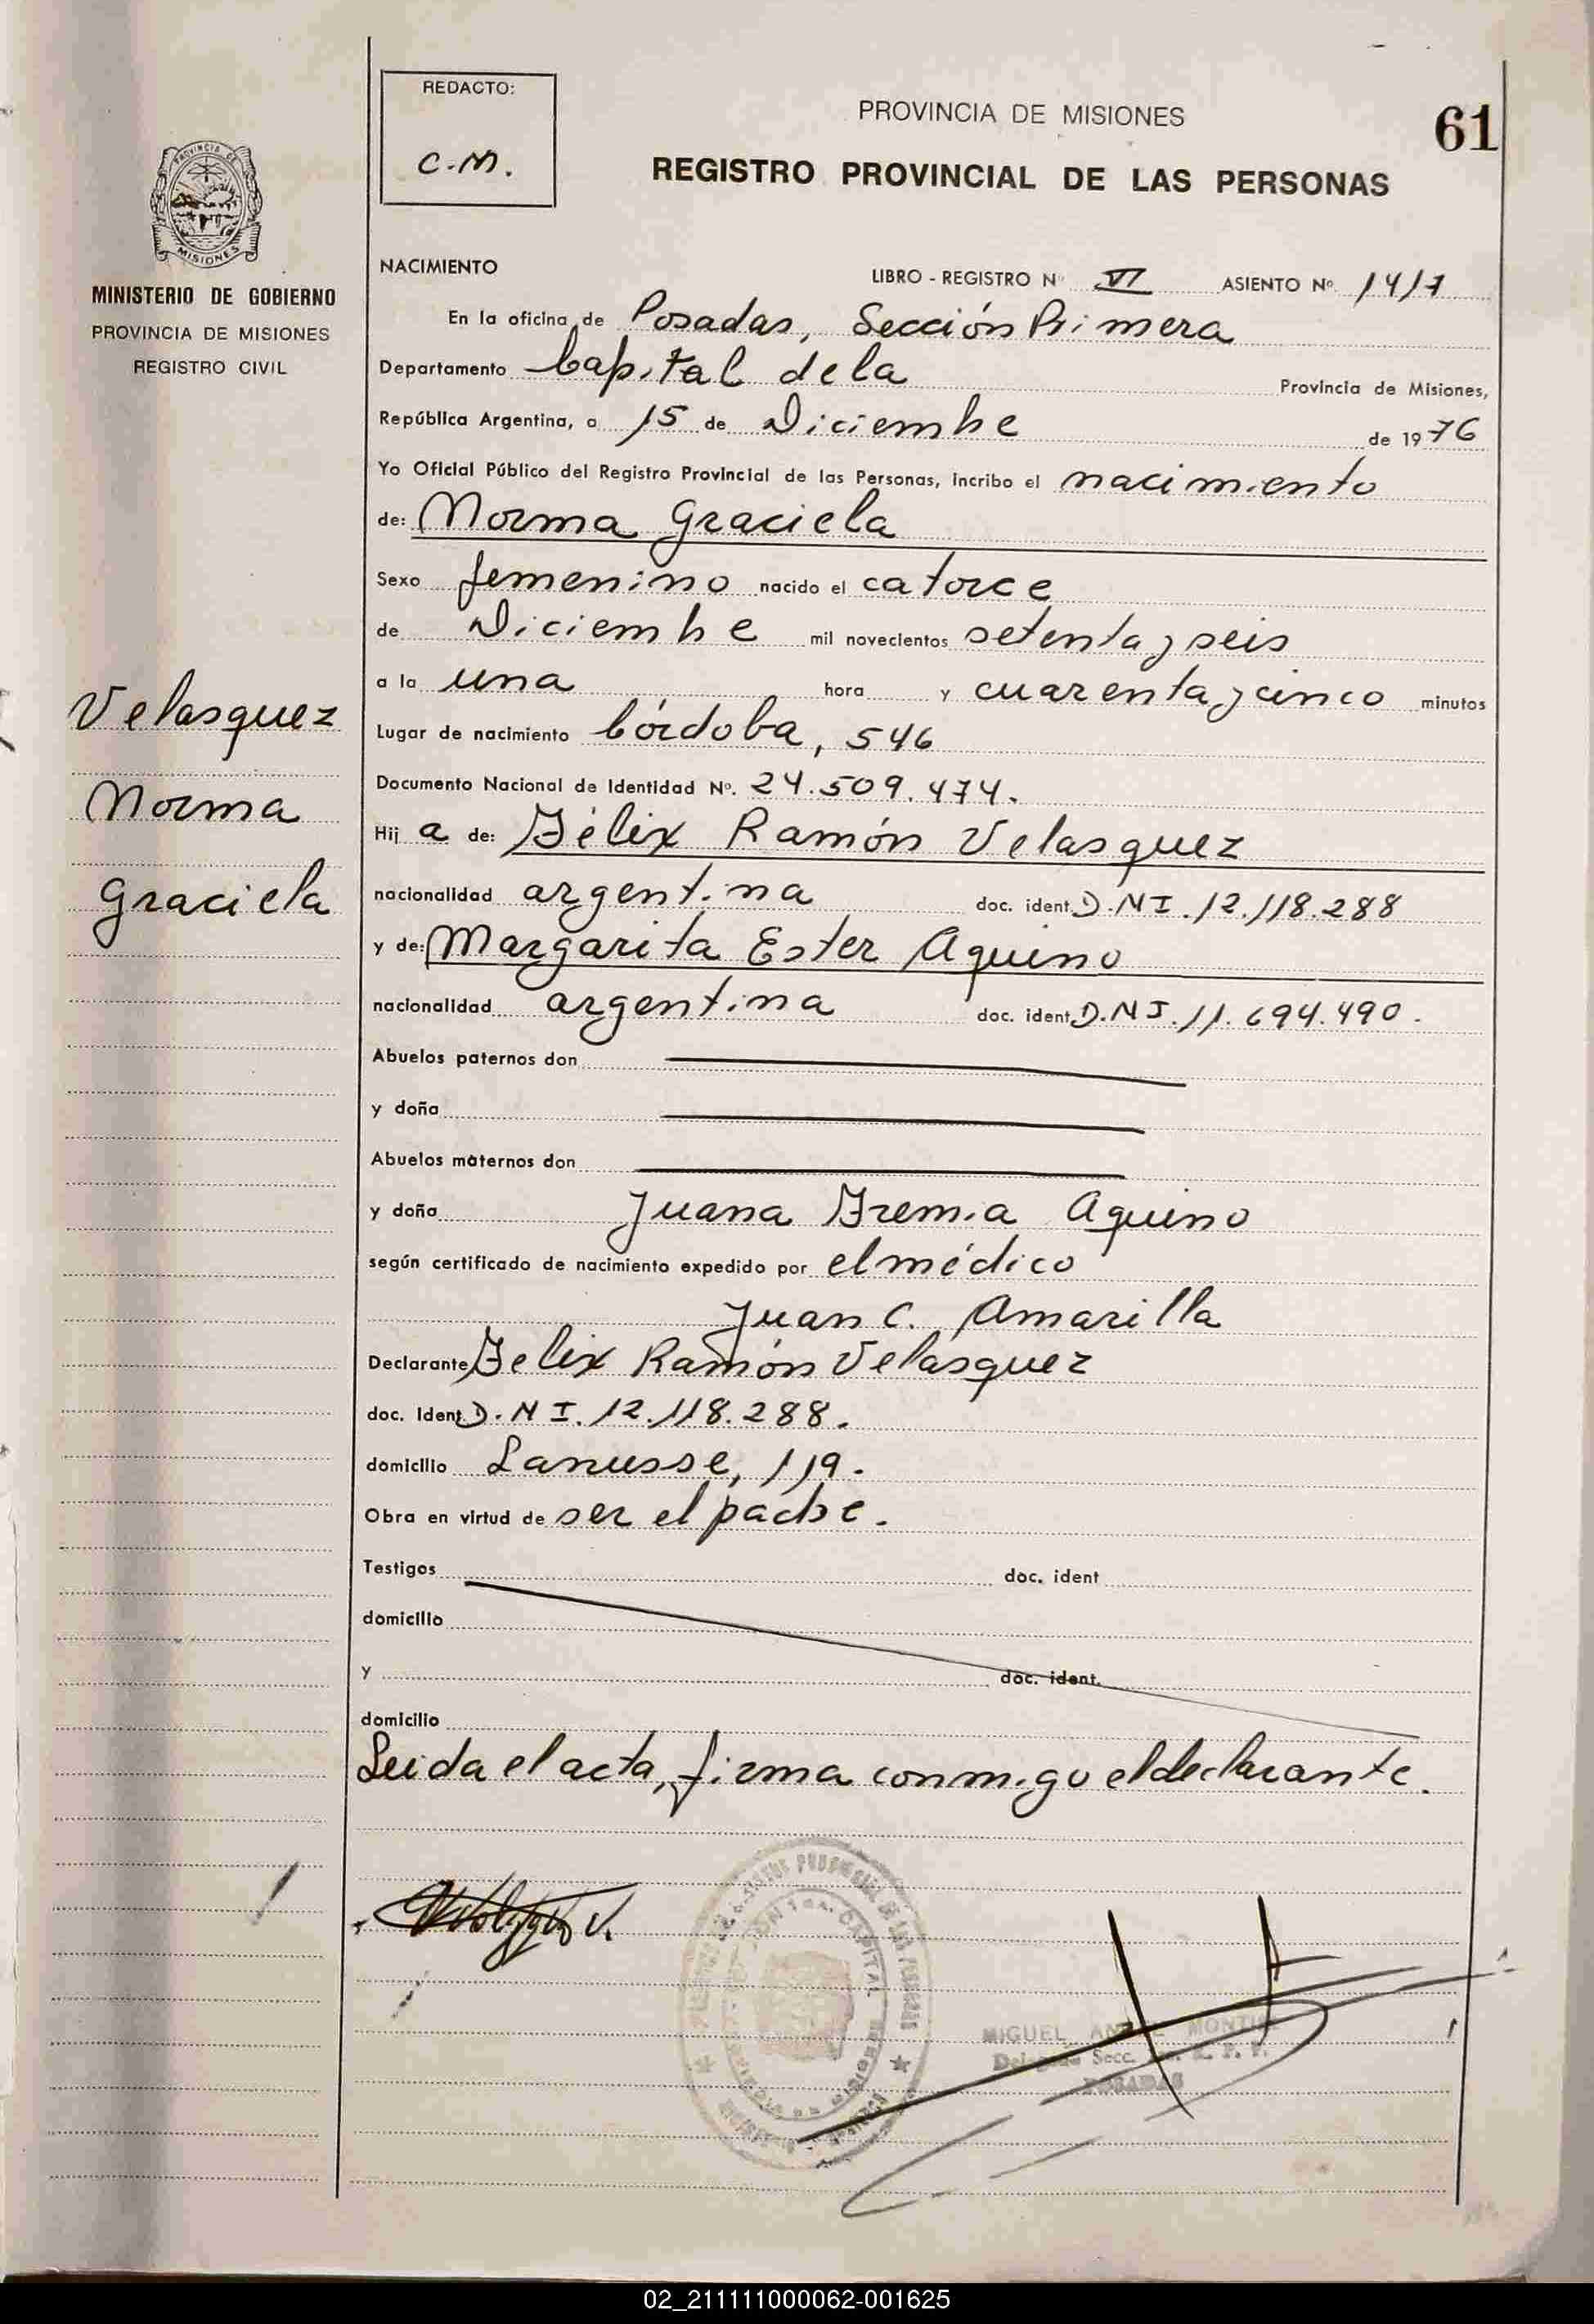 REDACTO:
C.M.
PROVINCIA DE MISIONES
61
REGISTRO PROVINCIAL DE LAS PERSONAS
PROVINCIA DE
MISIONES
MINISTERIO DE GOBIERNO
PROVINCIA DE MISIONES
REGISTRO CIVIL
NACIMIENTO
LIBRO - REGISTRO Nº VI ASIENTO Nº 1417
En la oficina de Posadas, Sección Primera
Departamento Capital de la Provincia de Misiones,
República Argentina, a 15 de Diciembre de 1976
Yo Oficial Público del Registro Provincial de las Personas, incribo el nacimiento
de: Norma Graciela
Sexo femenino nacido el catorce
de Diciembre mil novecientos setenta y seis
a la una hora y cuarenta y cinco minutos
Velasquez
Norma
Graciela
Lugar de nacimiento Córdoba, 546
Documento Nacional de Identidad Nº. 24.509.474.
Hij a de: Félix Ramón Velasquez
nacionalidad argentina doc. ident. D.NI.12.118.288
y de: Margarita Ester Aquino
nacionalidad argentina doc. ident. D.NI.11.694.490.
Abuelos paternos don
y doña
Abuelos maternos don
y doña Juana Fremia Aquino
según certificado de nacimiento expedido por el médico
Juan C. Amarilla
Declarante Felix Ramón Velásquez
doc. Ident. D.NI.12.118.288.
domicilio Lanusse, 119.
Obra en virtud de ser el padre.
Testigos doc. ident
domicilio
y doc. ident.
domicilio
Leida el acta, firma conmigo el declarante.
MIGUEL MONTIEL
Secc.
POSADAS
02_211111000062-001625